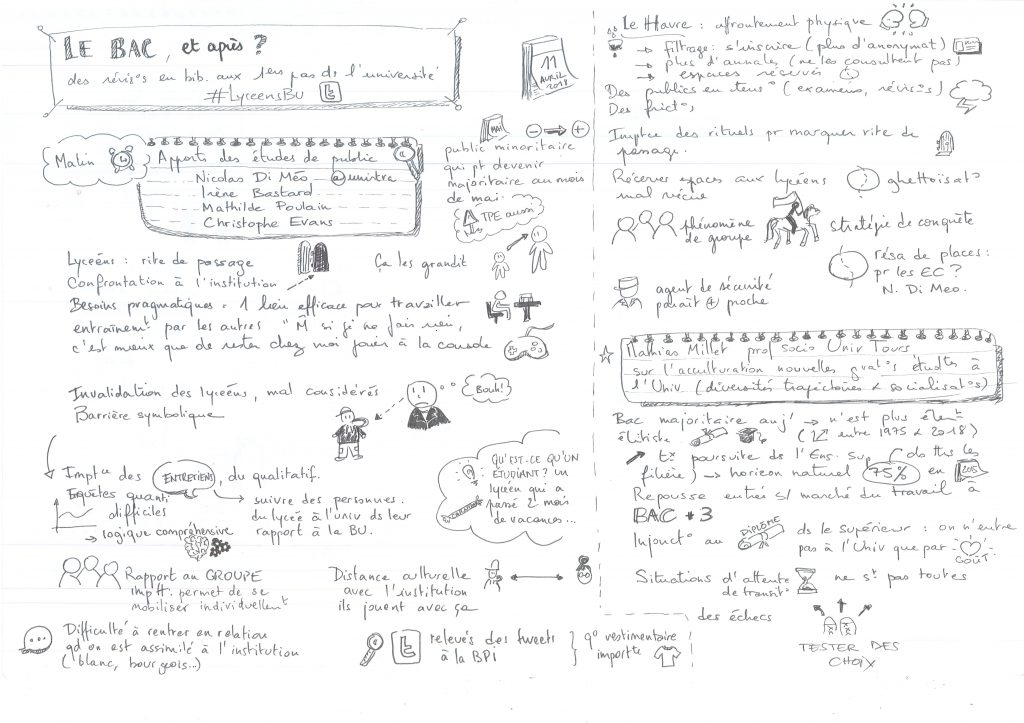 LE BAC, et après ?
des révis°s en bib. aux 1ers pas ds l'université
#LycéensBU
11
AVRIL
2018
Matin
Apports des études de public
Nicolas Di Méo @unistra
Irène Bastard
Mathilde Poulain
Christophe Evans
MAI
- → +
public minoritaire
qui pt devenir
majoritaire au mois
de mai.
TPE aussi
Lycéens : rite de passage
Confrontation à l'institution
Ça les grandit
Besoins pragmatiques = 1 lieu efficace pour travailler
entraînemt par les autres "M̂ si je ne fais rien,
c'est mieux que de rester chez moi jouer à la console
Invalidation des lycéens, mal considérés
Barrière symbolique
Bouh!
Imptce des ENTRETIENS, du qualitatif.
Enquêtes quanti
difficiles
→ logique compréhensive
suivre des personnes.
du lycée à l'univ ds leur
rapport à la BU.
QU'EST-CE QU'UN
ÉTUDIANT? UN
lycéen qui a
passé 2 mois
de vacances...
Rapport au GROUPE
imptt. permet de se
mobiliser individuellent
Distance culturelle
avec l'institution
ils jouent avec ça
Difficulté à rentrer en relation
qd on est assimilé à l'institution
(blanc, bourgeois...)
relevés des tweets
à la BPI
q° vestimentaire
importte
Le Havre : affrontement physique
→ filtrage : s'inscrire (plus d'anonymat)
→ plus d'annales (ne les consultent pas)
→ espaces réservés
Des publics en tens° (examens, révis°s)
Des frict°s
Imptce des rituels pr marquer rite de
passage.
Réserver espaces aux lycéens
mal vécue
ghettoïsat°
phénomène
de groupe
stratégie de conquête
agent de sécurité
paraît + proche
résa de places :
pr les EC ?
N. Di Meo.
Mathias Millet prof socio Univ Tours
sur l'acculturation nouvelles gnat°s étudts à
l'Univ. (diversités trajectoires & socialisat°s)
Bac majoritaire auj' → n'est plus élemt
élitiste
(entre 1975 & 2018)
tx poursuite ds l'Ens. Sup (ds ttes les
filière) → horizon naturel 75% en 2015
Repousse entrée s/ marché du travail à
BAC + 3
Injonct° au DIPLÔME ds le supérieur : on n'entre
pas à l'Univ que par GOÛT
Situations d'attente
de transit°
ne st pas toutes
des échecs
TESTER DES
CHOIX